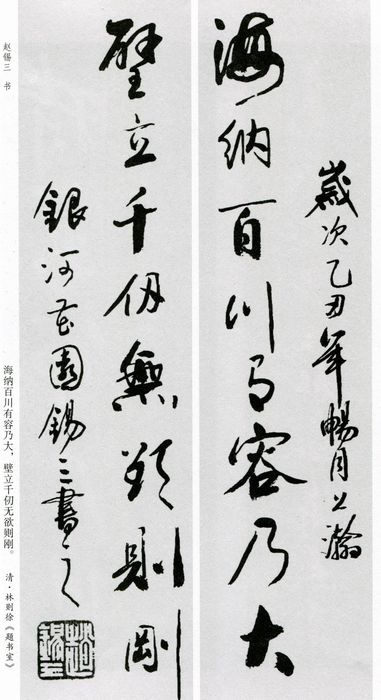 歲次乙丑年暢月上澣
海納百川有容乃大
壁立千仞無欲則剛
銀河花園錫三書之
趙錫三
赵锡三 书
海纳百川有容乃大，壁立千仞无欲则刚。 清·林则徐《题书室》